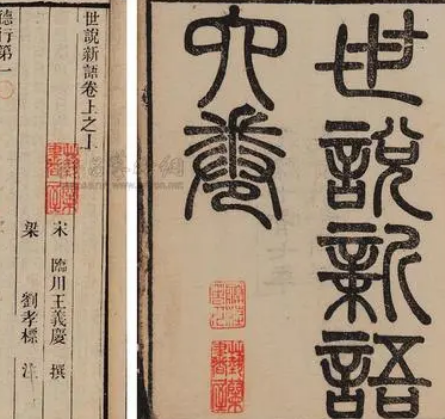 世說新語
六卷
世說新語卷上之上
宋 臨川王義慶 撰
梁 劉孝標 注
德行第一